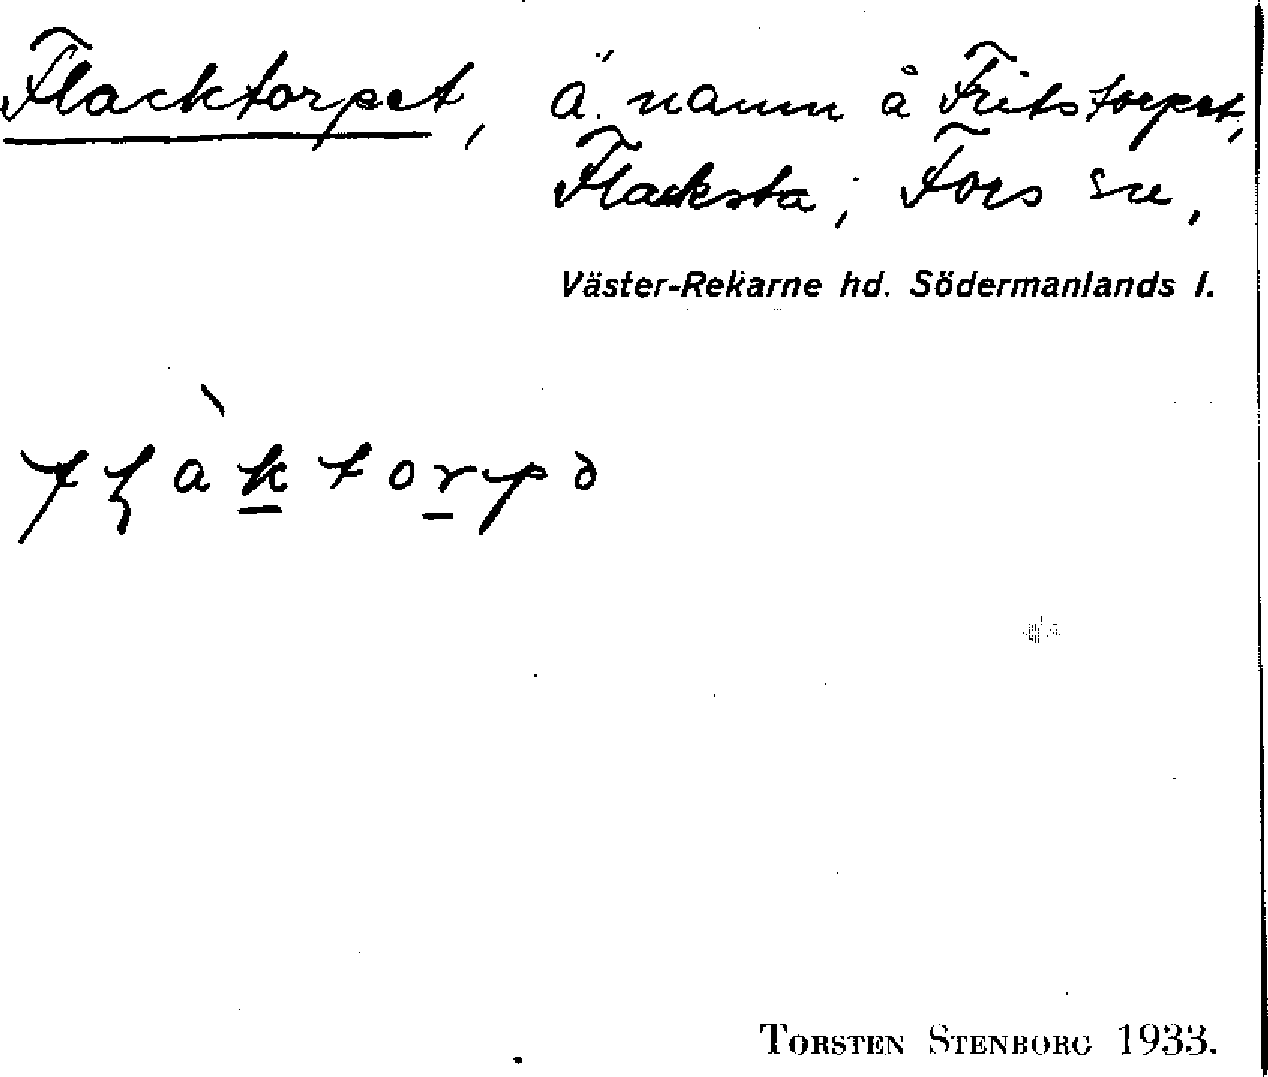 Flacktorpet, ä. namn å Fritstorpet,
Flacksta; Fors sn,
Väster-Rekarne hd. Södermanlands l.
flàktorpə
TORSTEN STENBORG 1933.